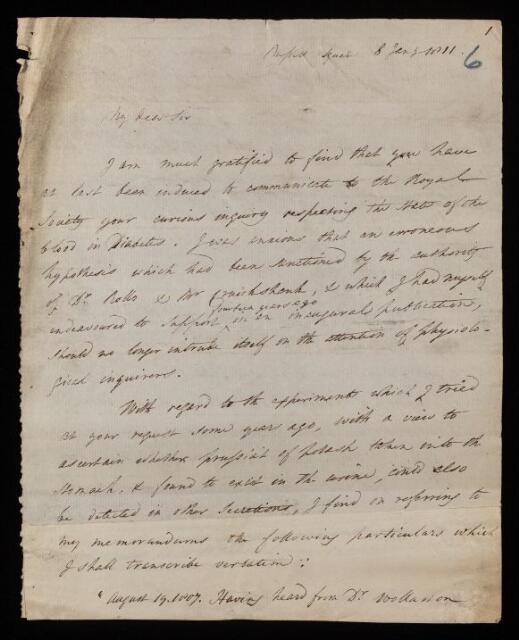 1
Russell Square 8 Jany 1811.
6
My dear Sir
I am much gratified to find that you have
at last been induced to communicate to the Royal
Society your curious inquiry respecting the state of the
blood in Diabetes. I was anxious that an erroneous
hypothesis which had been sanctioned by the authority
of Dr Rollo & Mr Cruickshank, & which I had myself
fourteen years ago
endeavoured to support in an inaugural publication,
should no longer intrude itself on the attention of physiolo-
gical inquirers.
With regard to the experiments which I tried
at your request some years ago, with a view to
ascertain whether prussiat of potash taken into the
stomach, & found to exist in the urine, could also
be detected in other secretions, I find on referring to
my memorandums the following particulars which
I shall transcribe verbatim:
"August 19. 1807. Having heard from Dr Wollaston